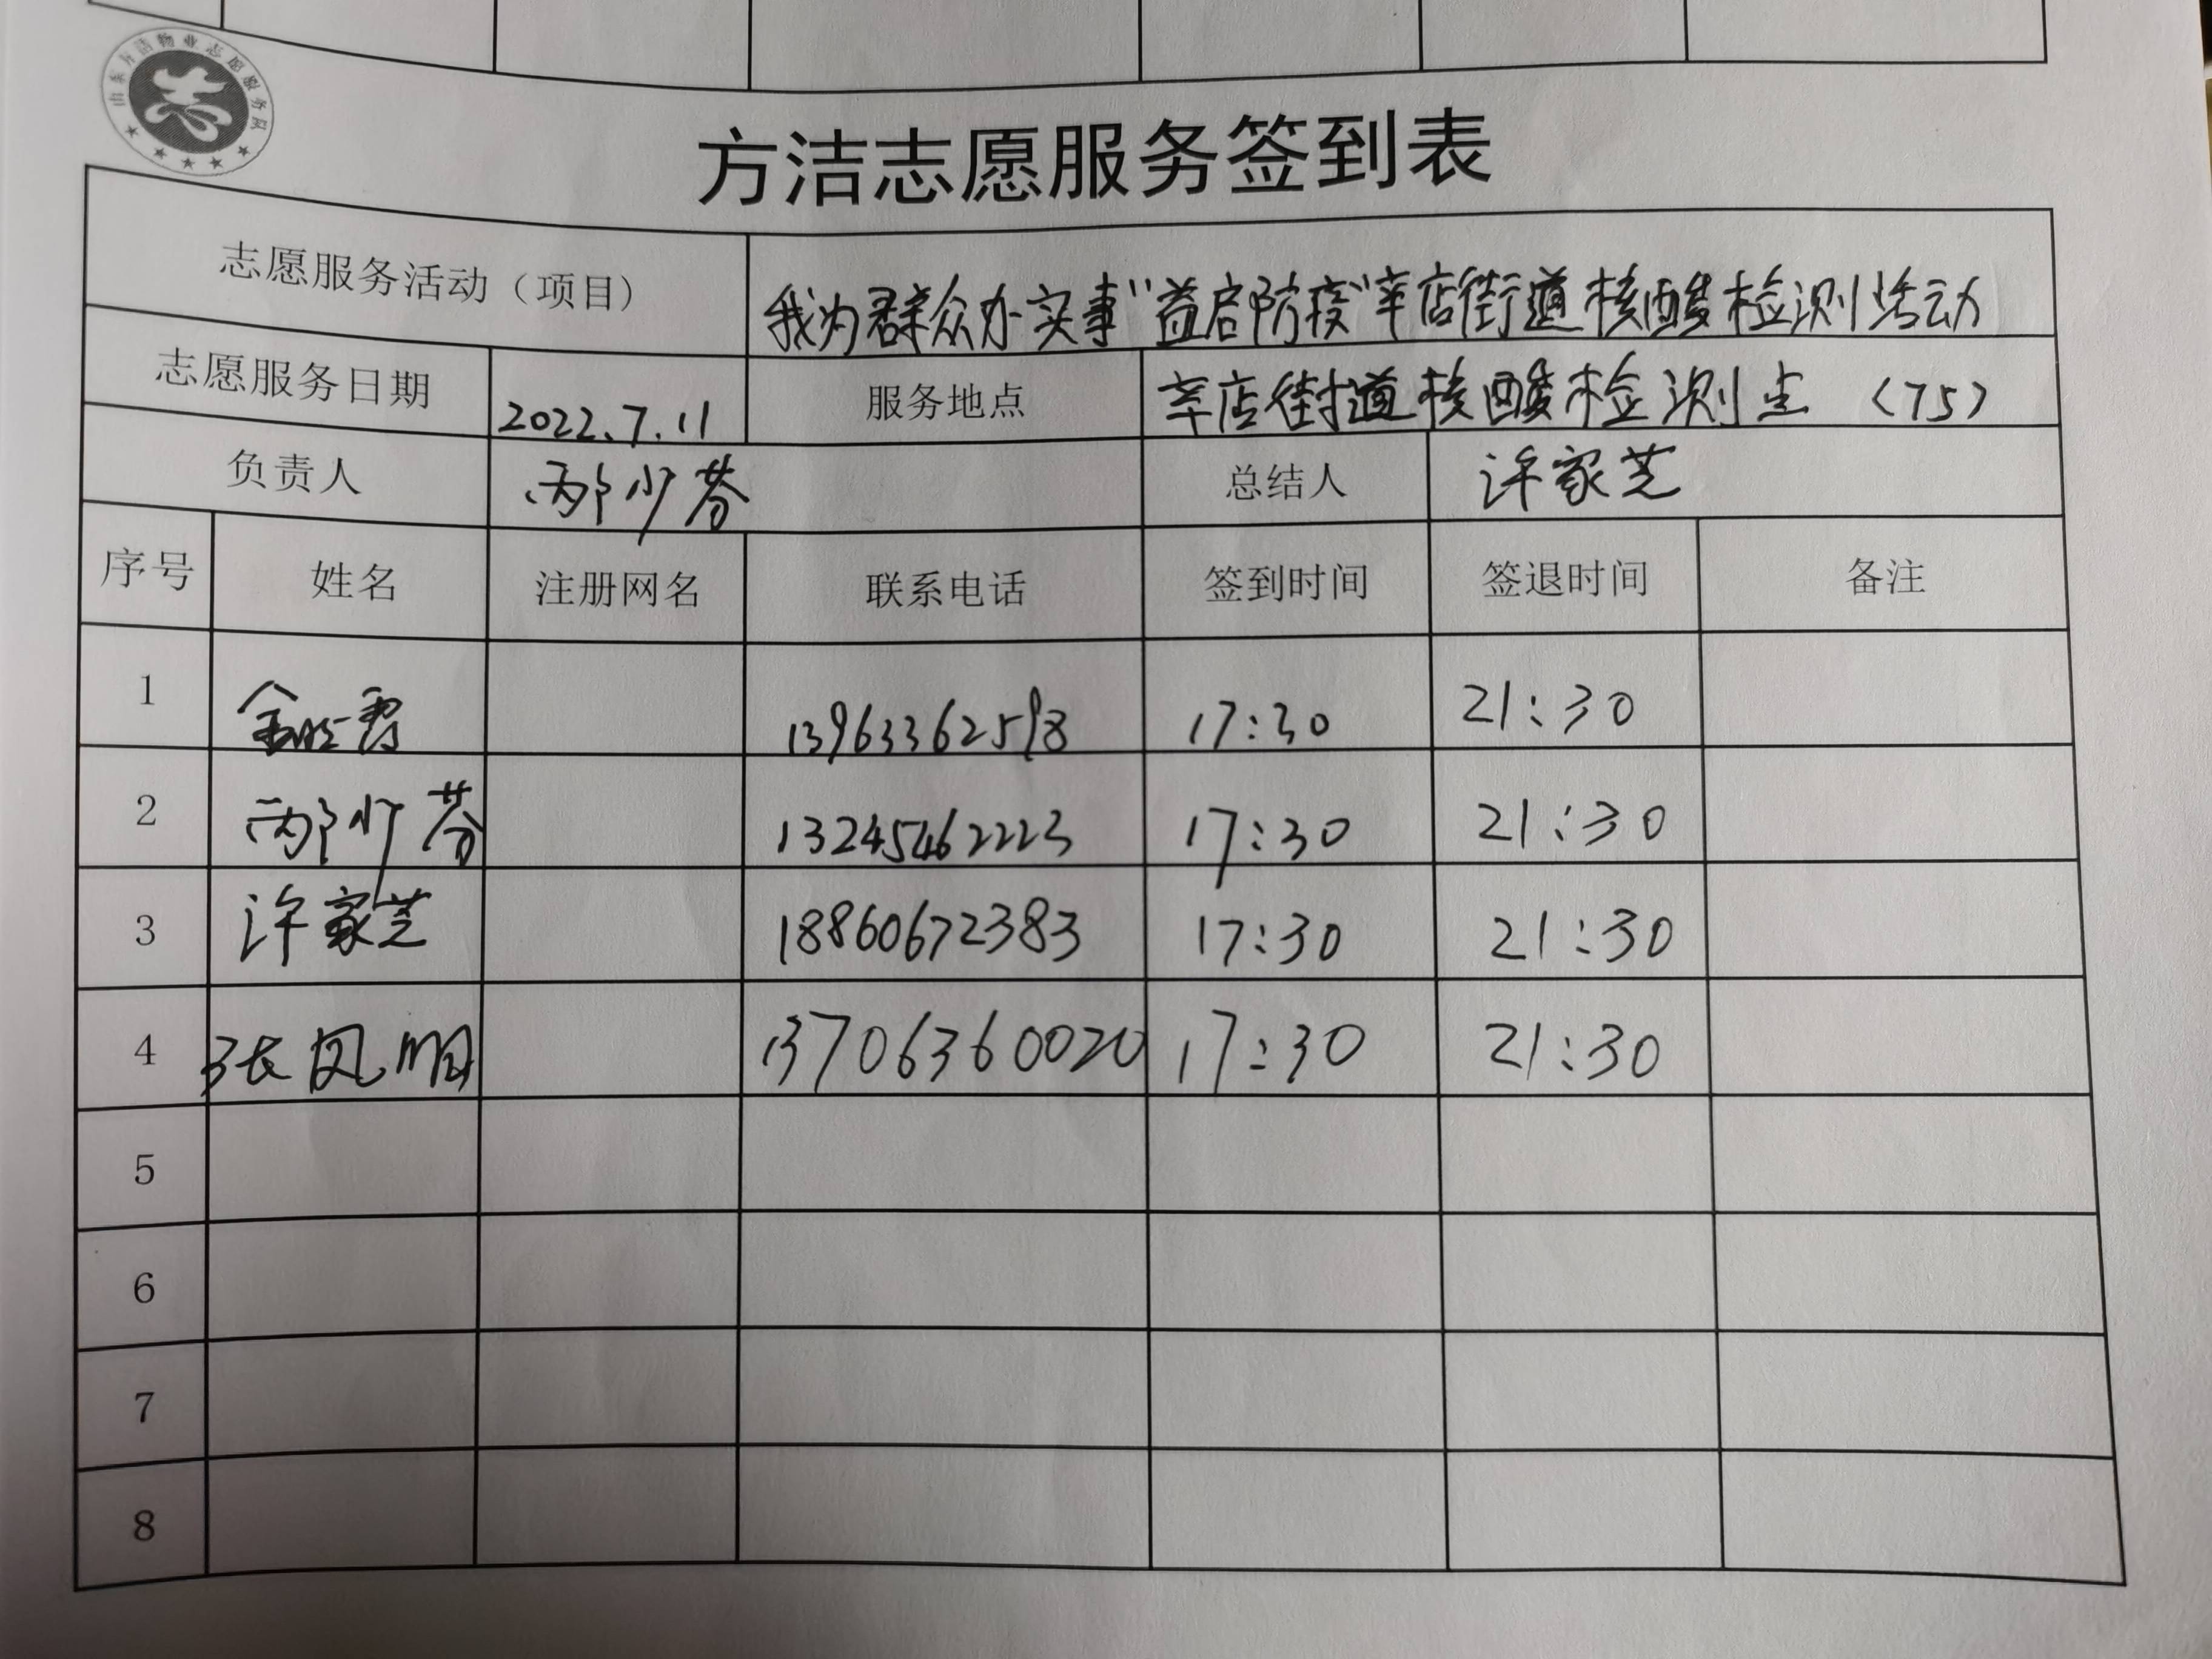 山东方洁物业志愿服务队
方洁志愿服务签到表
志愿服务活动（项目） 我为群众办实事"益启防疫"辛店街道核酸检测活动
志愿服务日期 2022.7.11 服务地点 辛店街道核酸检测点 （75）
负责人 邴少芬 总结人 许家芝
序号 姓名 注册网名 联系电话 签到时间 签退时间 备注
1 13963362598 17:30 21:30
2 邴少芬 13245462223 17:30 21:30
3 许家芝 18860672383 17:30 21:30
4 张凤明 13706360020 17:30 21:30
5
6
7
8